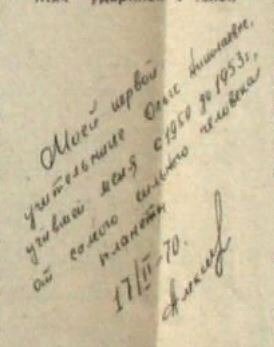 Моей первой
учительнице Ольге Николаевне,
учившей меня с 1950 до 1953 г,
от самого сильного человека
планеты
17/II-70.